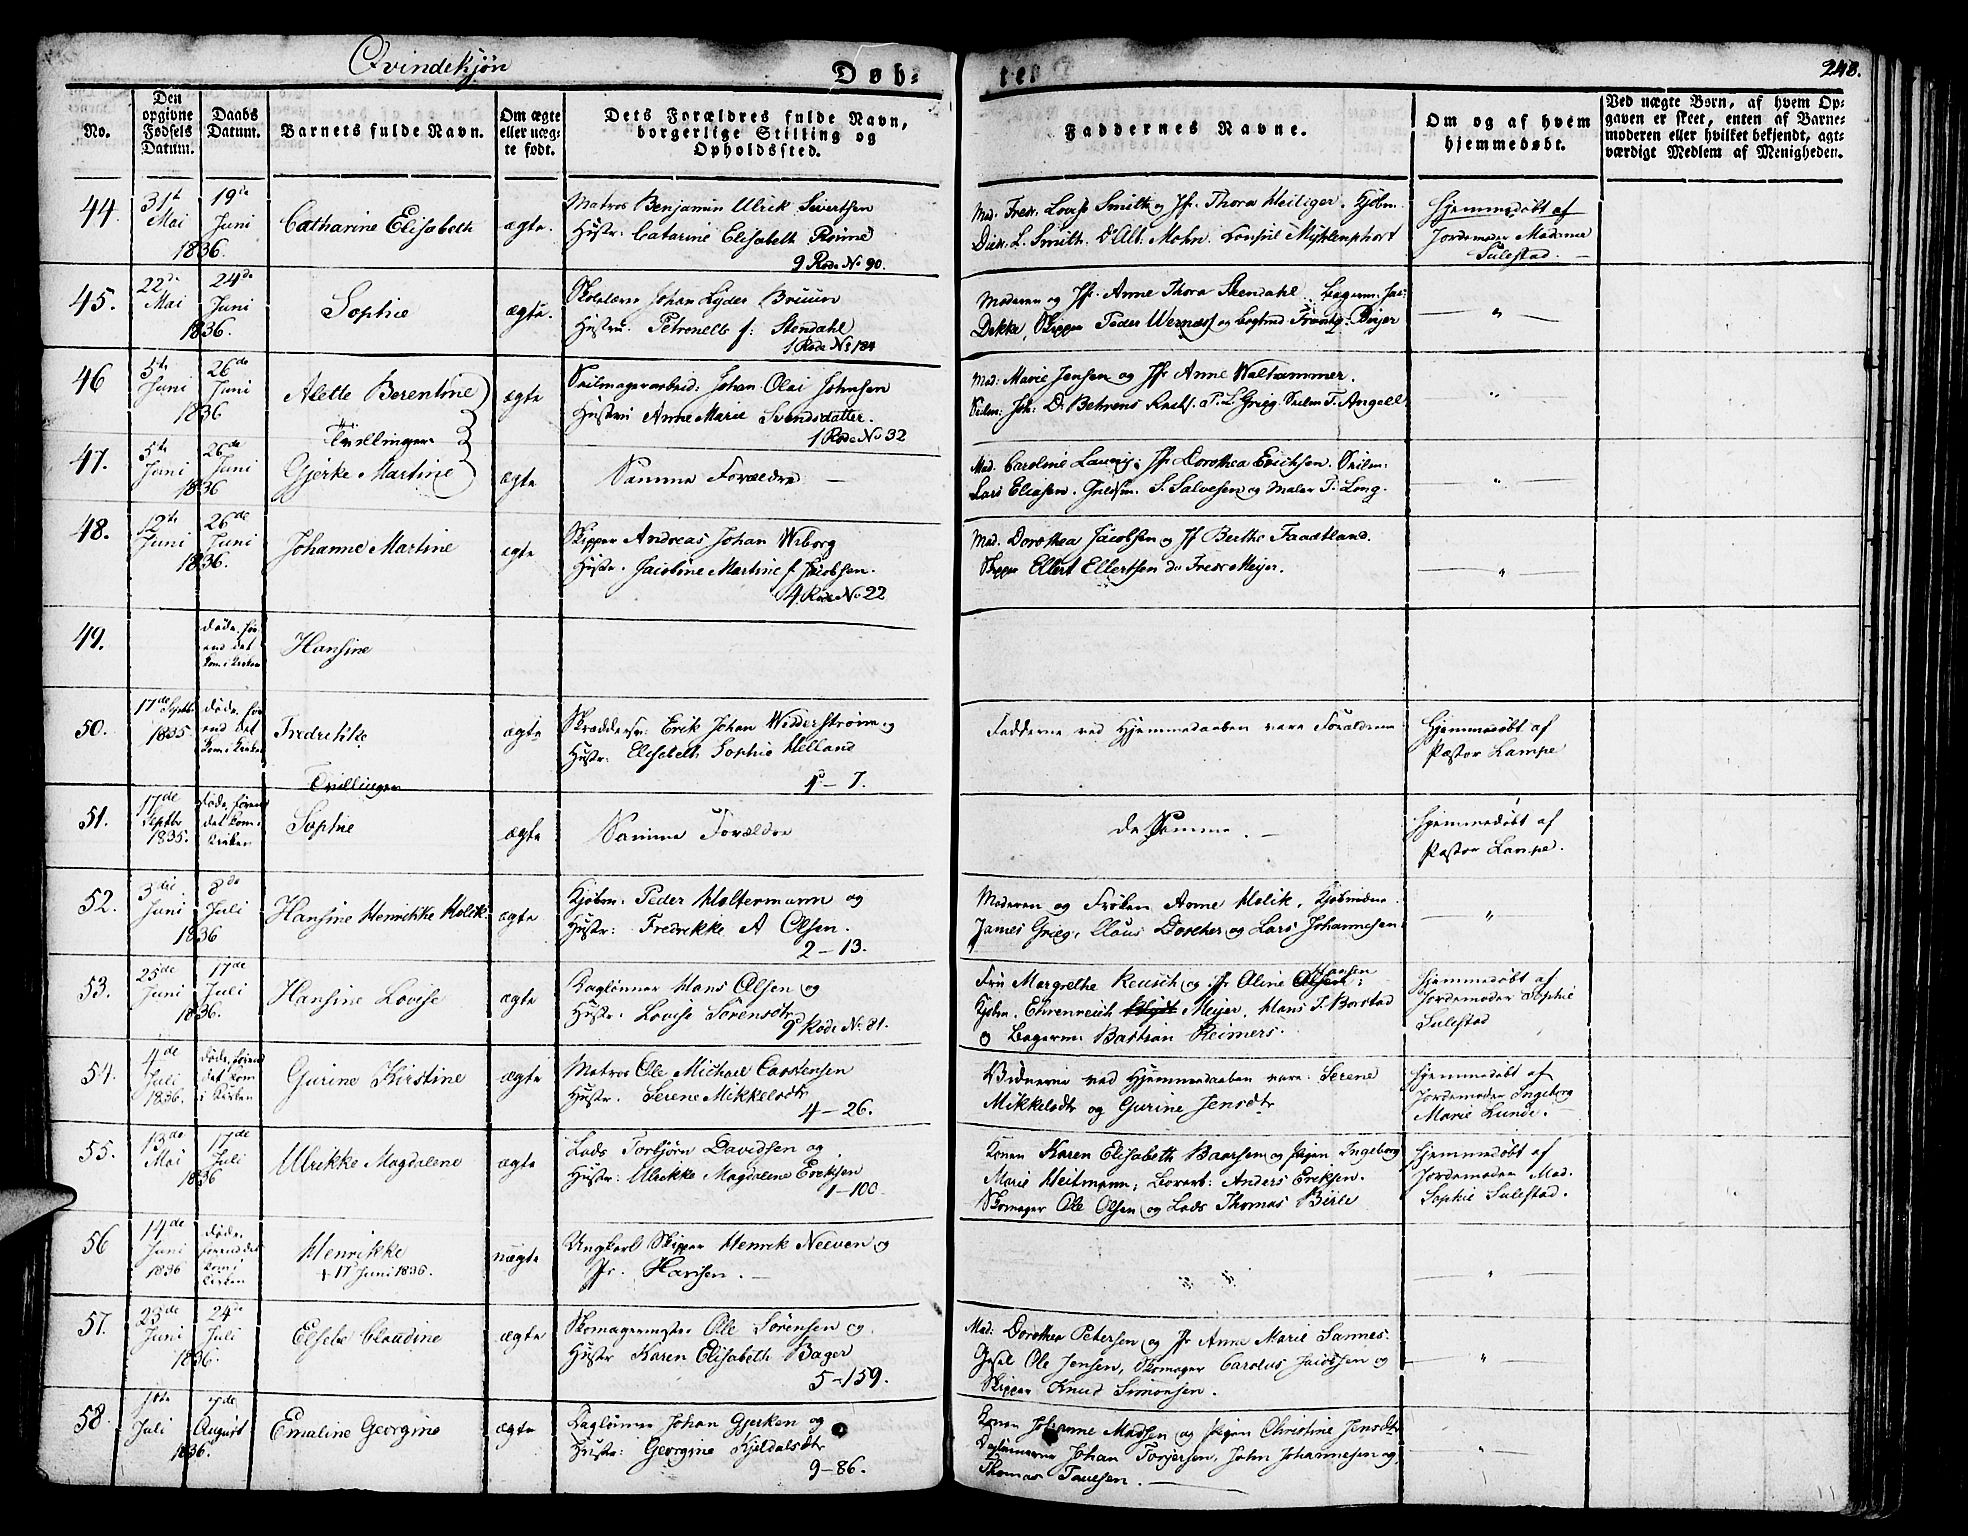 Qvindekjøn
Døb-
tes
248.
No.
Den opgivne Fødsels Datum.
Daabs Datum.
Barnets fulde Navn.
Om ægte eller uægte født.
Dets Forældres fulde Navn, borgerlige Stilling og Opholdssted.
Faddernes Navne.
Om og af hvem hjemmedøbt.
Ved uægte Børn, af hvem Opgaven er skeet, enten af Barnemoderen eller hvilket bekjendt, agtværdigt Medlem af Menigheden.
44. 31te Mai 19de Juni 1836.
Catharine Elisabeth
ægte.
Matros Benjamin Ulrik Sivertsen
Hustr: Catarine Elisabeth
9 Rode No 90.
Mad. Fredr. Lovise Smith og Jfr. Thora Heiliger. Kjøbm.
L. Smith. Mohn. Consul
Hjemmedøbt af
Jordemoder Madame
Sulestad.
45. 22de Mai 24de Juni 1836.
Sophie
ægte.
Johan Lyder Bruun
Hustru: Petronelle f: Stendahl
1 Rode No 184
Moderen og Jfr. Anne Thora Stendahl. Bagerm: Jac:
Dekke, Skipper Peder Wernøs og
"
46 5te Juni 26de Juni 1836
Alette Berentine
ægte
Seilmagerarbeid: Johan Olai Johnsen
Hustru Anne Marie Svendsdatter.
1 Rode No 32
Mad: Marie Jensen og Jfr Anne Walhammer.
Seilm: Joh: D. Behrens T. Angell
"
Tvillinger
47. 5te Juni 26de Juni 1836
Gjerke Martine
ægte
Samme Forældre
Mad. Caroline Jfr Dorothea Erichsen. Seilm:
Lars Eliasen. Guldsm. S. Salvesen og Maler
"
48. 12te Juni 26de Juni 1836.
Johanne Martine
ægte
Skipper Andreas Johan Wiborg
Hustr. Jacobine Martine f. Jacobsen.
4 Rode No 22
Mad. Dorothea Jacobsen og Jf Berthe Faadtland.
Skipper Ellert Ellertsen Fredr Meijer.
"
49.
døde, førend det kom i Kirken
Hansine
50. 17de Septbr 1835
døde, førend det kom i Kirken
Fredrikke
ægte
Skræddersv: Erik Johan Widderstrøm og
Hustr: Elisabeth Sophie Helland
1 – 7.
Fadderne ved Hjemmedaaben vare Forældrene
Hjemmedøbt af
Pastor Lampe
Tvillinger
51. 17de Septbr 1835.
døde, førend det kom i Kirken
Sophie
ægte
Samme Forældre
De Samme.
Hjemmedøbt af
Pastor Lampe.
52. 3die Juni 8de Juli 1836
Hansine Henrikke Holik
ægte
Kjøbm: Peder Holtermann og
Hustr: Fredrikke A Olsen.
2 – 13.
Moderen og Frøken Anne Holik, Kjøbmdne
James Grieg, Claus Dorscher og Lars Johannesen
"
53. 25de Juni 17de Juli 1836.
Hansine Lovise
ægte
Daglønner Hans Olsen og
Hustr: Lovise Sørensdtr
9 Rode No 81.
Fru Margrethe Reusch og Jfr Oline Olsen Hansen;
Kjøbm. Ehrenreich Meijer, Hans J. Borstad
og Bagerm: Bastian Reimers.
Hjemmedøbt af
Jordemoder Sophie
Sulestad
54. 4de Juli 1836.
døde, førend det kom i Kirken
Gurine Kirstine
ægte
Matros Ole Michael Carstensen
Hustr. Serene Mikkelsdtr
4 – 26.
Vidnerne ved Hjemmedaaben vare: Serene
Mikkelsdtr og Gurine Jensdtr
Hjemmedøbt af
Jordemoder Ingeborg
Marie Lunde.
55. 13de Mai 17de Juli 1836
Ulrikke Magdalene
ægte
Lods Torbjørn Davidsen og
Hustr: Ulrikke Magdalene Eriksen
1 – 100.
Konen Karen Elisabeth Baarsen og Pigen Ingeborg
Marie Heitmann; Anders Eriksen.
Skomager Ole Olsen og Lods Thomas Birle
Hjemmedøbt af
Jordemoder Mad.
Sophie Sulestad.
56 14de Juni 1836
døde, førend det kom i Kirken
Henrikke
+ 17 Juni 1836.
uægte
Ungkarl Skipper Henrik Neeven og
Jfr. Hansen.
" "
"
57. 23de Juni 24de Juli 1836.
Elsebe Claudine
ægte
Skomagermester Ole Sørensen og
Hustr Karen Elisabeth Bager
5 – 159.
Mad: Dorothea Petersen og Jfr Anne Marie Sannes.
Ole Jensen, Skomager Carolus Jacobsen og
Skipper Knud Simonsen.
"
58. Juli 7de August 1836.
Emaline Georgine
ægte
Daglønner Johan Gjerken og
Hustr: Georgine Kjeldalsdtr
9 – 86.
Konen Johanne Madsen og Pigen Christine Jensdtr
Daglønnerne Johan Torjersen, John Johannesen og
Thomas Tauesen.
"